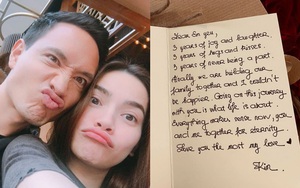 Dear Em yêu,
3 years of joy and laughter,
3 years of hugs and kisses
3 years of never being a part.
Finally we are building our
family together and I couldn't
be happier. Going on this journey
with you is what life is about.
Everything makes sense now, you
and me together for eternity.
Love you the most my love
Kim